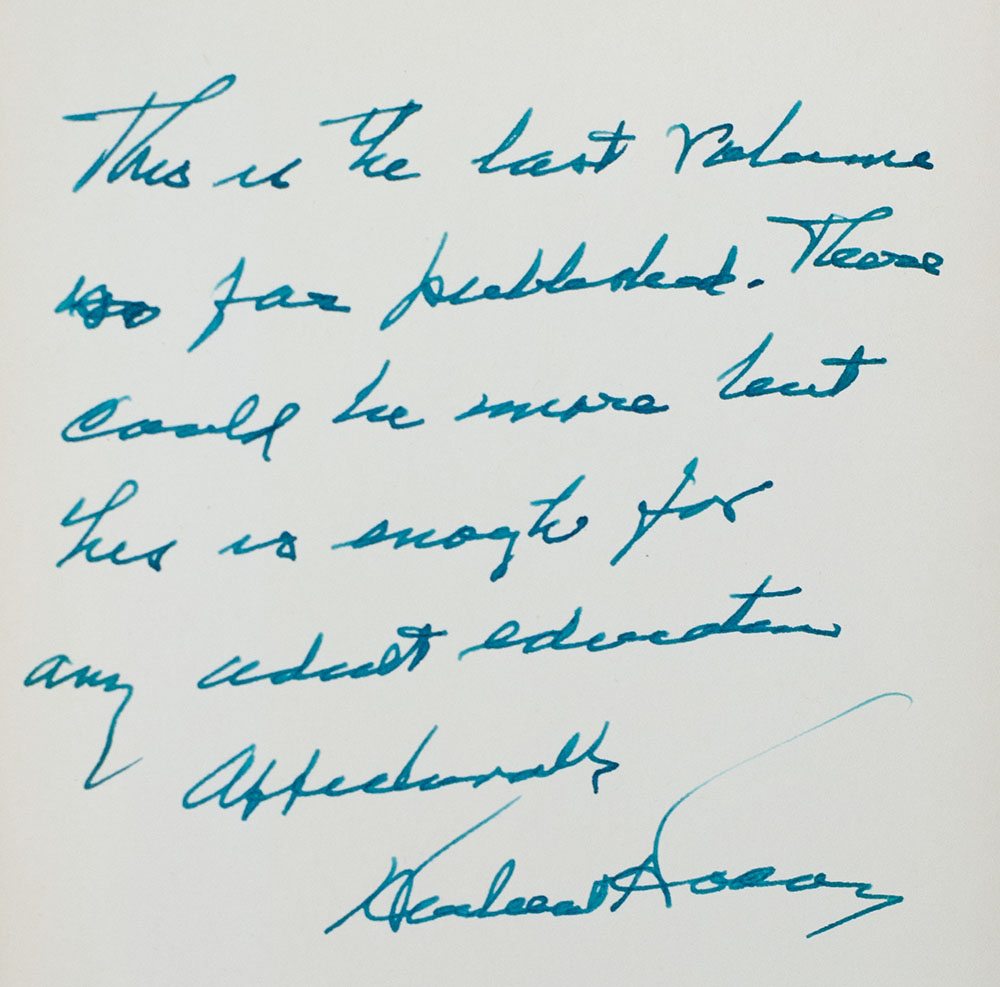 This is the last volume
so far published. There
could be more but
this is enogh for
any adult education
Affectionately
Herbert Hoover